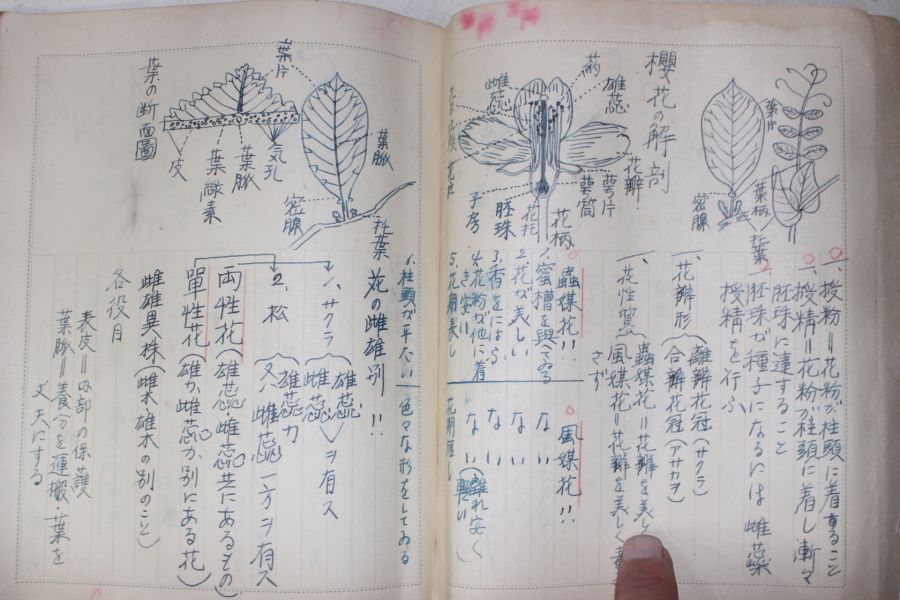 櫻花の解剖
葯
雄蕊
雌蕊
花瓣
萼片
萼筒
花柄
花托
胚珠
子房
葉片
葉柄
密腺
托葉
一、授粉＝花粉が柱頭に着すること
一、授精＝花粉が柱頭に着し漸々
胚珠に達すること
一、胚珠が種子になるには雌蕊
授精を行ふ
一、花瓣形
離瓣花冠（サクラ）
合瓣花冠（アサカヲ）
一、花性
蟲媒花＝花瓣を美しく
風媒花＝花瓣を美しく
さず
蟲媒花！！
1.蜜槽を
2.花が美しい
3.香をはなつ
4.花粉が他に着
き安い
5.花期長し
6.柱頭が平たい
風媒花！！
ない
ない
ない
ない（離れ安く
軽い）
花期短し
色々な形をしてゐる
葉片
葉脈
葉の断面圖
皮
葉緑素
葉脈
気孔
密腺
托葉
花の雌雄別！！
1、サクラ（雄蕊 雌蕊）ヲ有ス
2、松（雄蕊カ 又ハ雌蕊）一方ヲ有ス
両性花（雄蕊雌蕊共にあるもの）
單性花（雄か雌蕊か別にある花）
雌雄異株（雌木雄木の別のこと）
各役目
表皮＝内部の保護
葉脈＝養分を運搬・葉を
丈夫にする